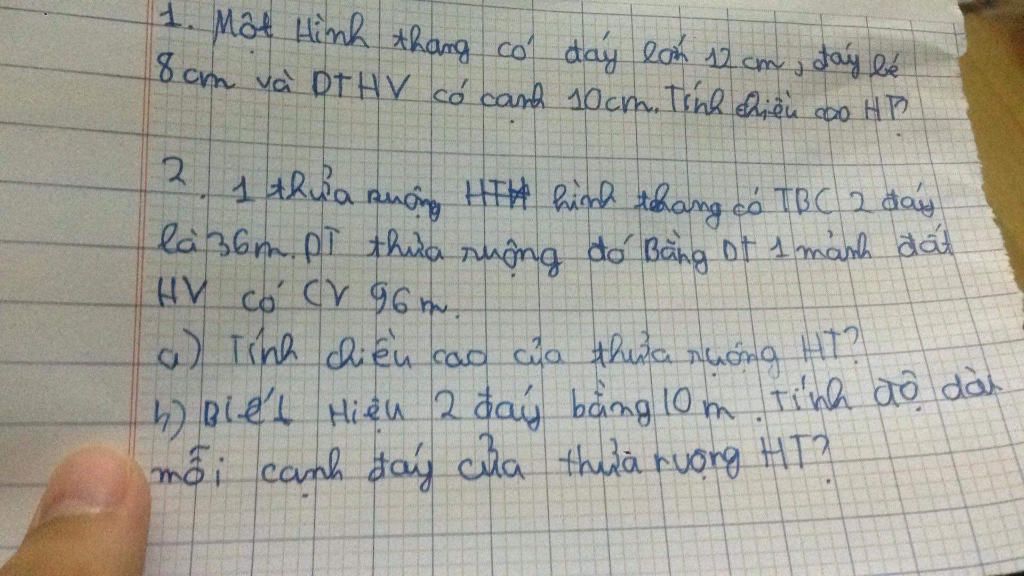 1. Một Hình thang có đáy lớn 12 cm, đáy bé
8 cm và DTHV có cạnh 10cm. Tính chiều cao HT?
2. 1 thửa ruộng HTH hình thang có TBC 2 đáy
là 36m. DT thửa ruộng đó Bằng DT 1 mảnh đất
HV có CV 96 m.
a) Tính chiều cao của thửa ruộng HT?
b) Biết Hiệu 2 đáy bằng 10 m. Tính độ dài
mỗi cạnh đáy của thửa ruộng HT?